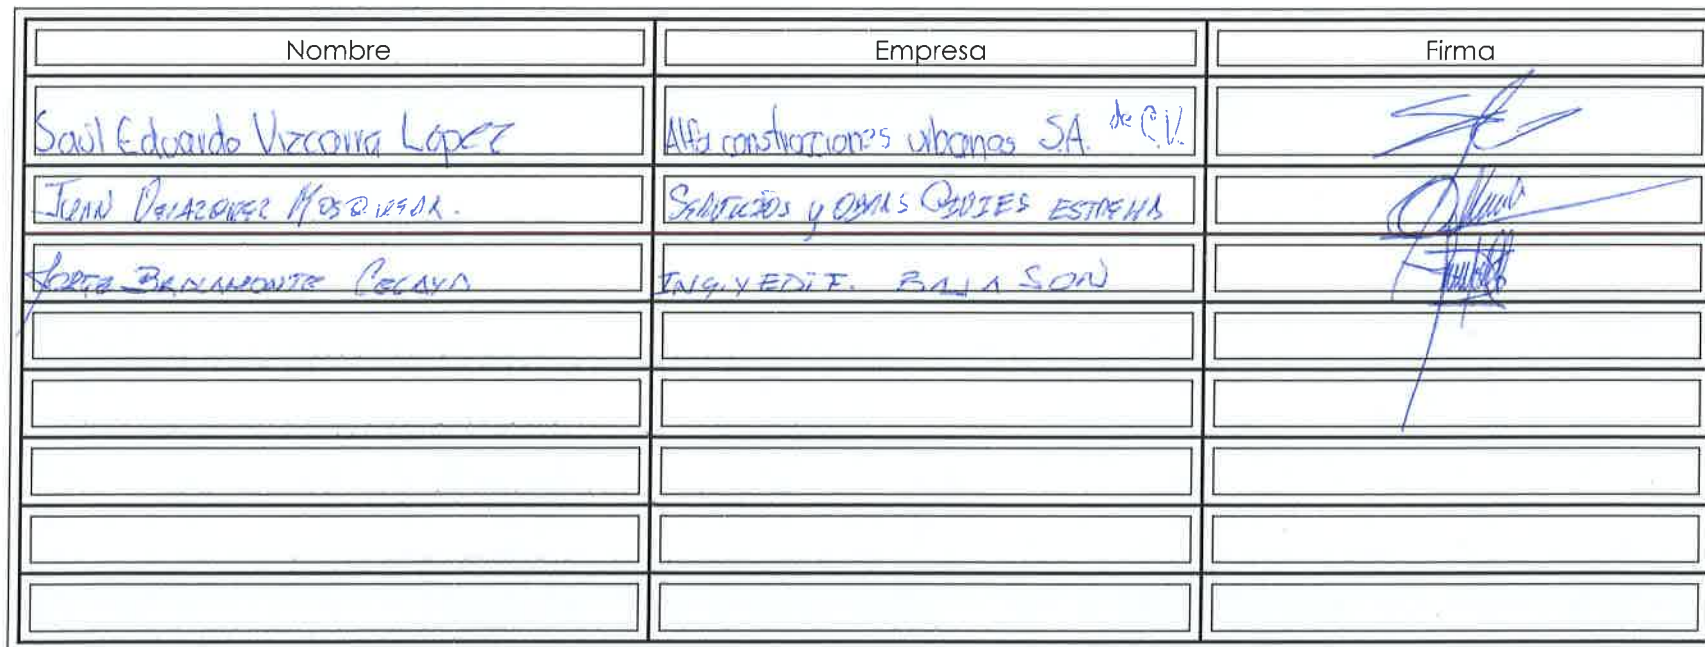 Nombre Empresa Firma
Saúl Eduardo Vizcarra López Alfa construcciones urbanas S.A. de C.V.
JUAN VELAZQUEZ SERVICIOS y OBRAS ESTRELLA
JORGE BRACAMONTE CELAYA ING. Y EDIF. BAJA SON